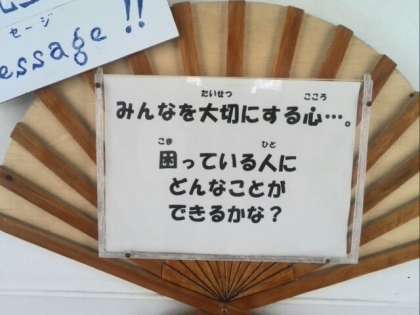 セージ
essage !!
みんなを大切にする心…。
困っている人に
どんなことが
できるかな？